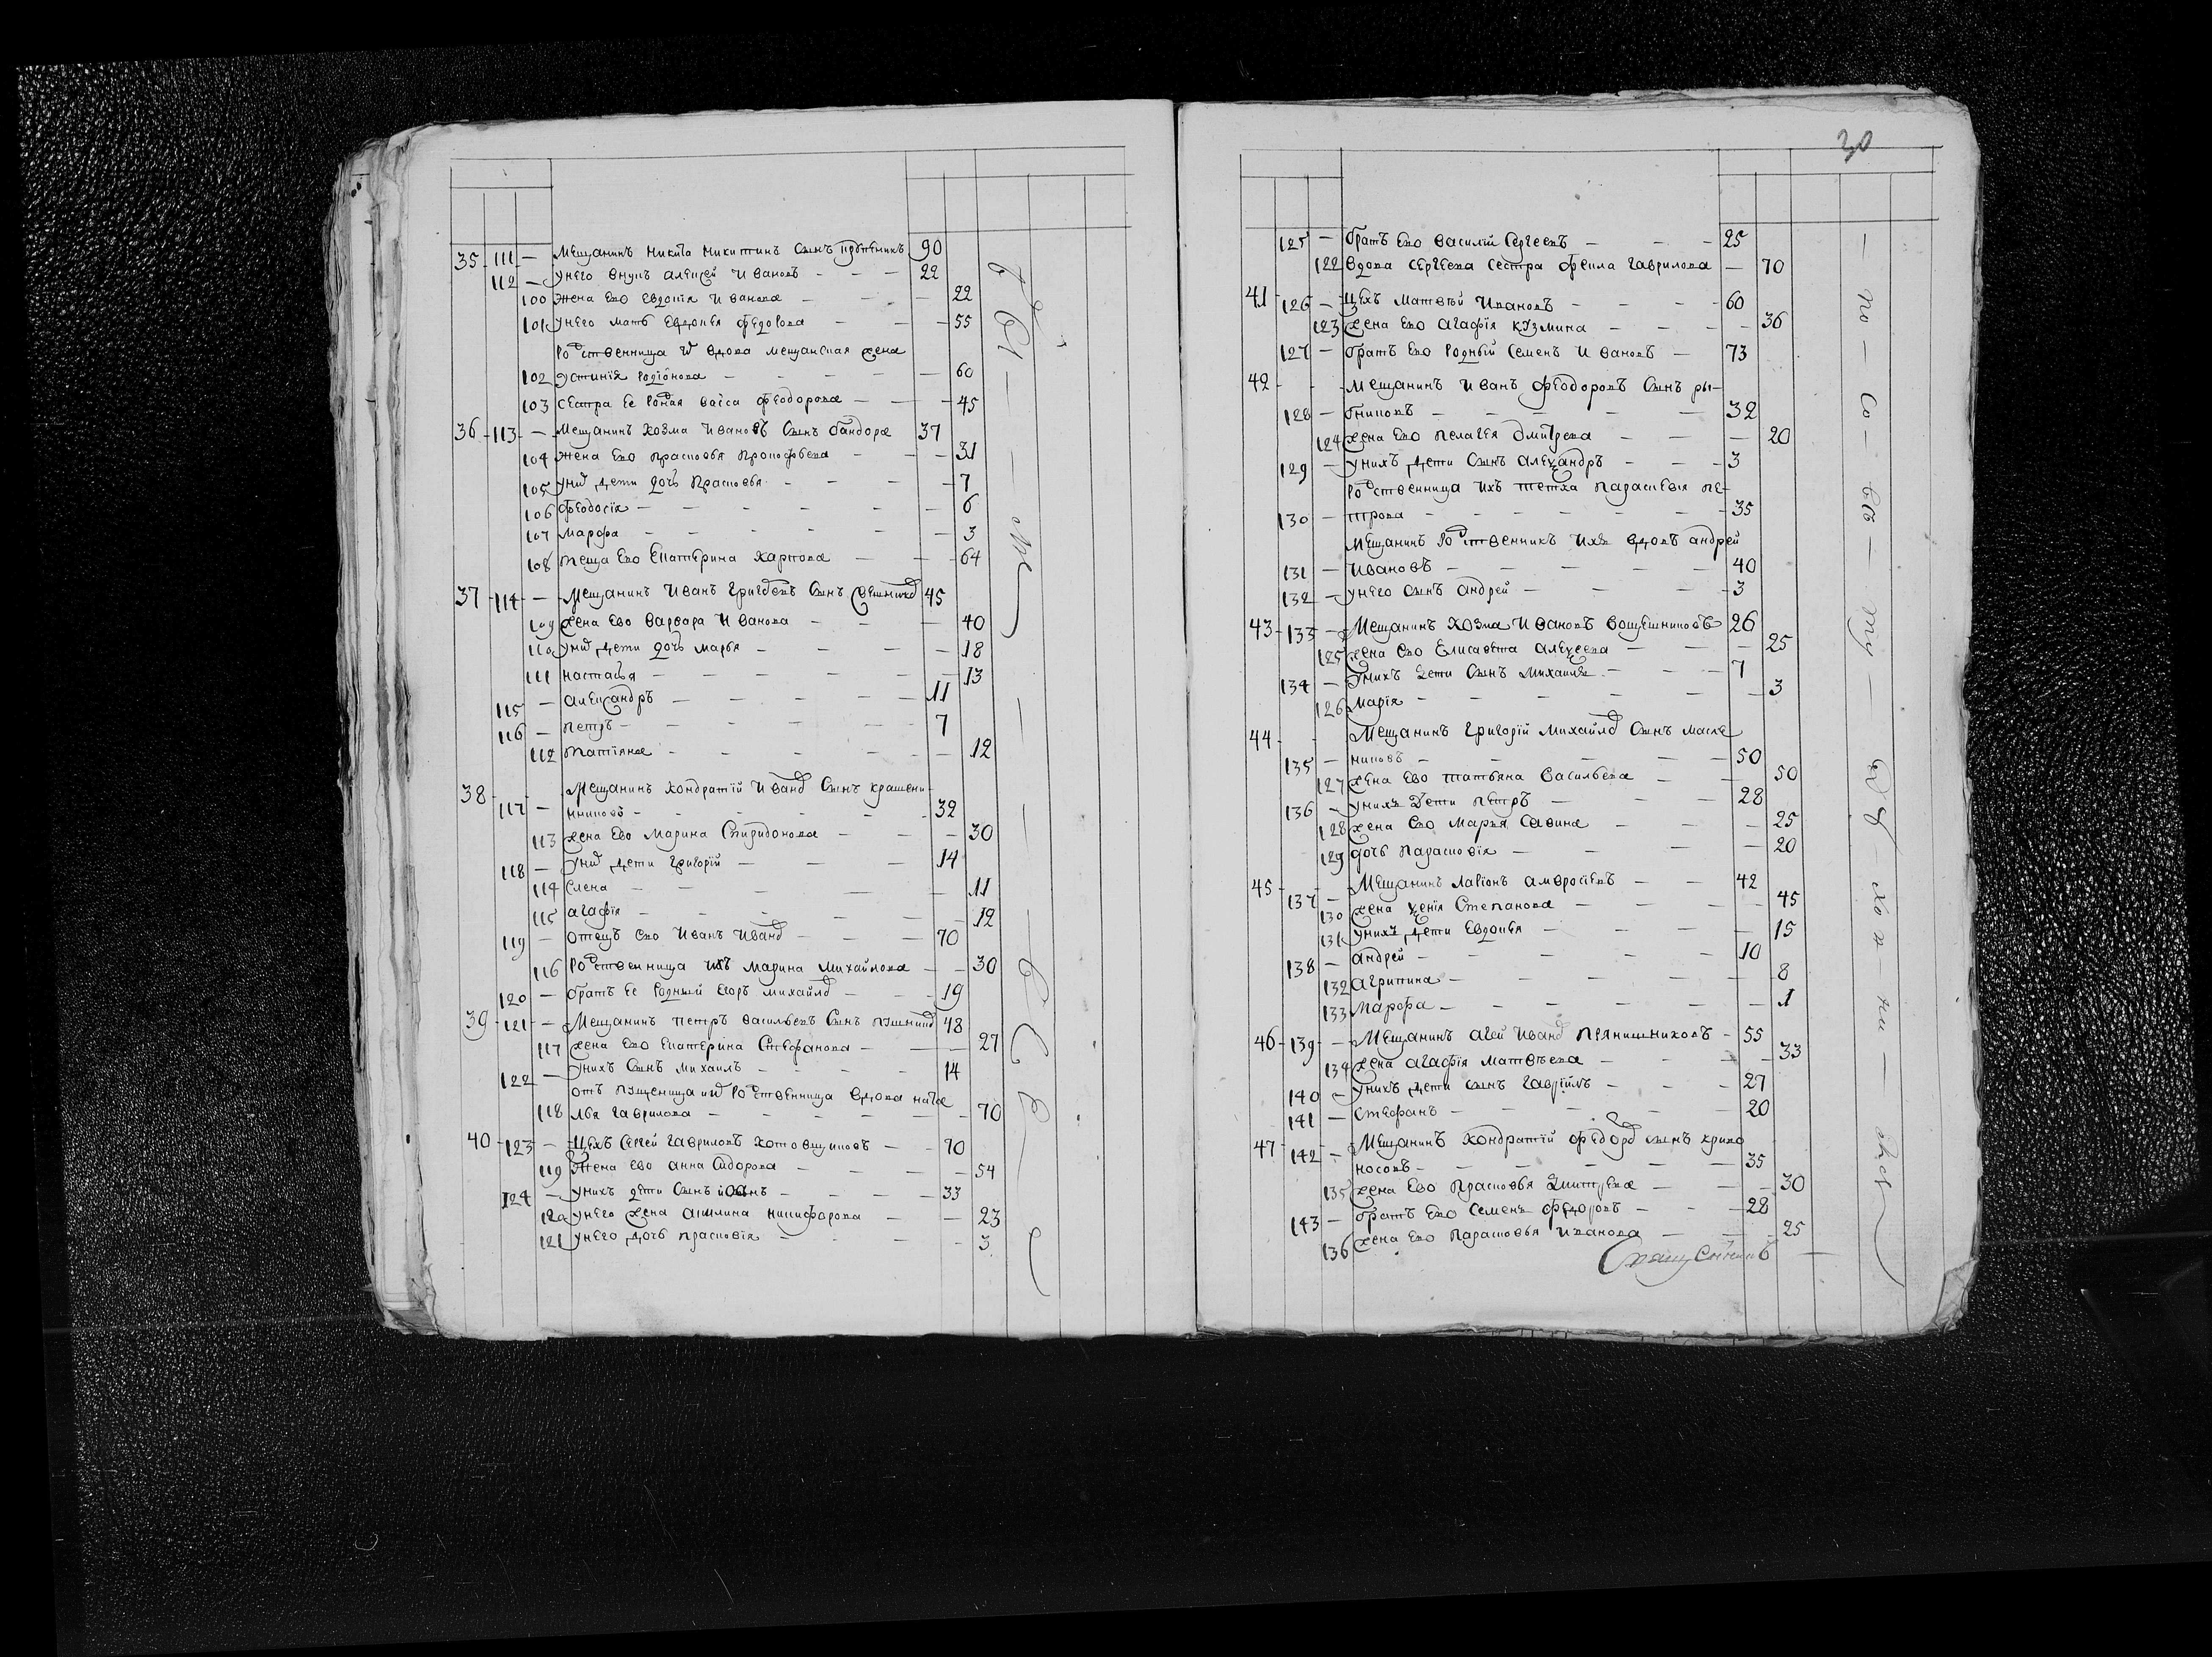 35 111 — Мещанинъ Никита Никитинъ Сынъ 90
112 — Унего внукъ Алексей Ивановъ — — — 22
100 Жена Ево Евдокія Иванова — — — 22
101 Унего мать Евдокея Федорова — — — 55
Родственница их вдова мещанская жена
102 Устинія Родіонова — — — — — 60
103 Сестра Ее Родная Васса Феодорова — — — 45
36 113 — Мещанинъ Козма Ивановъ Сынъ Бандоре 37
104 Жена Ево Прасковья Прокофьева — — — 31
105 Уних дети дочь Прасковья — — — — 7
106 Феодосія — — — — — — 6
107 Марфа — — — — — — 3
108 Теща Ево Екатерина Харпова — — — 64
37 114 — Мещанинъ Иванъ Григорьевъ Сынъ 45
109 жена Ево Варвара Иванова — — — 40
110 Уних дети дочь Марья — — — — 18
111 Настасья — — — — — — 13
115 — Александръ — — — — — 11
116 — Петръ — — — — — 7
112 Татіяна — — — — — — 12
38 Мещанинъ Кондратій Иванов Сынъ крашени-
117 — нниковъ — — — — — 32
113 жена Ево Марина Спиридонова — — — 30
118 — Уних дети Григорій — — — 14
114 Елена — — — — — — 11
115 Агафія — — — — — — 12
119 — отецъ Ево Иванъ Иванов — — — 70
116 Родственница ихъ Марина Михайлова — — 30
120 — братъ Ее Родный Егоръ Михайлов — — — 19
39 121 — Мещанинъ Петръ Васильевъ Сынъ 48
117 жена Ево Екатерина Стефанова — — — 27
122 — Унихъ Сынъ Михаилъ — — — — 14
отъ пущеница их Родственница вдова Ната
118 лья Гаврилова — — — — — — 70
40 123 — Цехъ Сергей Гавриловъ Котовщиковъ — — 70
119 Жена Ево Анна Сидорова — — — — 54
124 — Унихъ дети Сынъ — — — — 33
120 Унего жена Акилина Никифорова — — 23
121 Унего дочь Прасковія — — — — 3
30
125 — братъ Ево Василій Сергеевъ — — — 25
122 вдова Сергеева сестра Фекла Гаврилова — 70
41 126 — Цехъ Матвей Ивановъ — — — — 60
123 жена Ево Агафія Кузмина — — — — 36
127 — братъ Ево Родный Семенъ Ивановъ — 73
42 — — Мещанинъ Иванъ Феодоровъ Сынъ ры-
128 — бниковъ — — — — — 32
124 жена Ево Пелагея Дмитрева — — — 20
129 — Унихъ дети Сынъ Александръ — — — 3
Родственница ихъ тетка Параскевія Пе-
130 — трова — — — — — — 35
Мещанинъ Родственникъ Ихъ вдовъ Андрей
131 — Ивановъ — — — — — 40
132 — Унего Сынъ Андрей — — — — 3
43 133 — Мещанинъ Козма Ивановъ 26
125 жена Ево Елисавета Алексеева — — — 25
134 — Унихъ дети Сынъ Михаилъ — — — 7
126 Марія — — — — — — 3
44 — — Мещанинъ Григорій Михайлов Сынъ Масле
135 — никовъ — — — — — 50
127 жена Ево Татьяна Васильева — — — 50
136 — Унихъ Дети Петръ — — — 28
128 жена Ево Марья Савина — — — 25
129 дочь Парасковія — — — — 20
45 137 — Мещанинъ Ларіонъ Амвросіевъ — — 42
130 жена Ксенія Степанова — — — — 45
131 Унихъ дети Евдокея — — — — 15
138 — Андрей — — — — — 10
132 Агрипина — — — — — 8
133 Марфа — — — — — — 1
46 139 — Мещанинъ Агей Иванов Прянишниковъ — 55
134 жена Агафія Матвеева — — — — 33
140 — Унихъ дети сынъ Гаврійлъ — — — 27
141 — Стефанъ — — — — — 20
47 142 — Мещанинъ Кондратій Федоров сынъ криво
носовъ — — — — — — 35
135 жена Ево Прасковья Дмитрева — — — 30
143 — братъ Ево Семенъ Федоровъ — — — 28
136 жена Ево Парасковья Иванова — — — 25
Священникъ